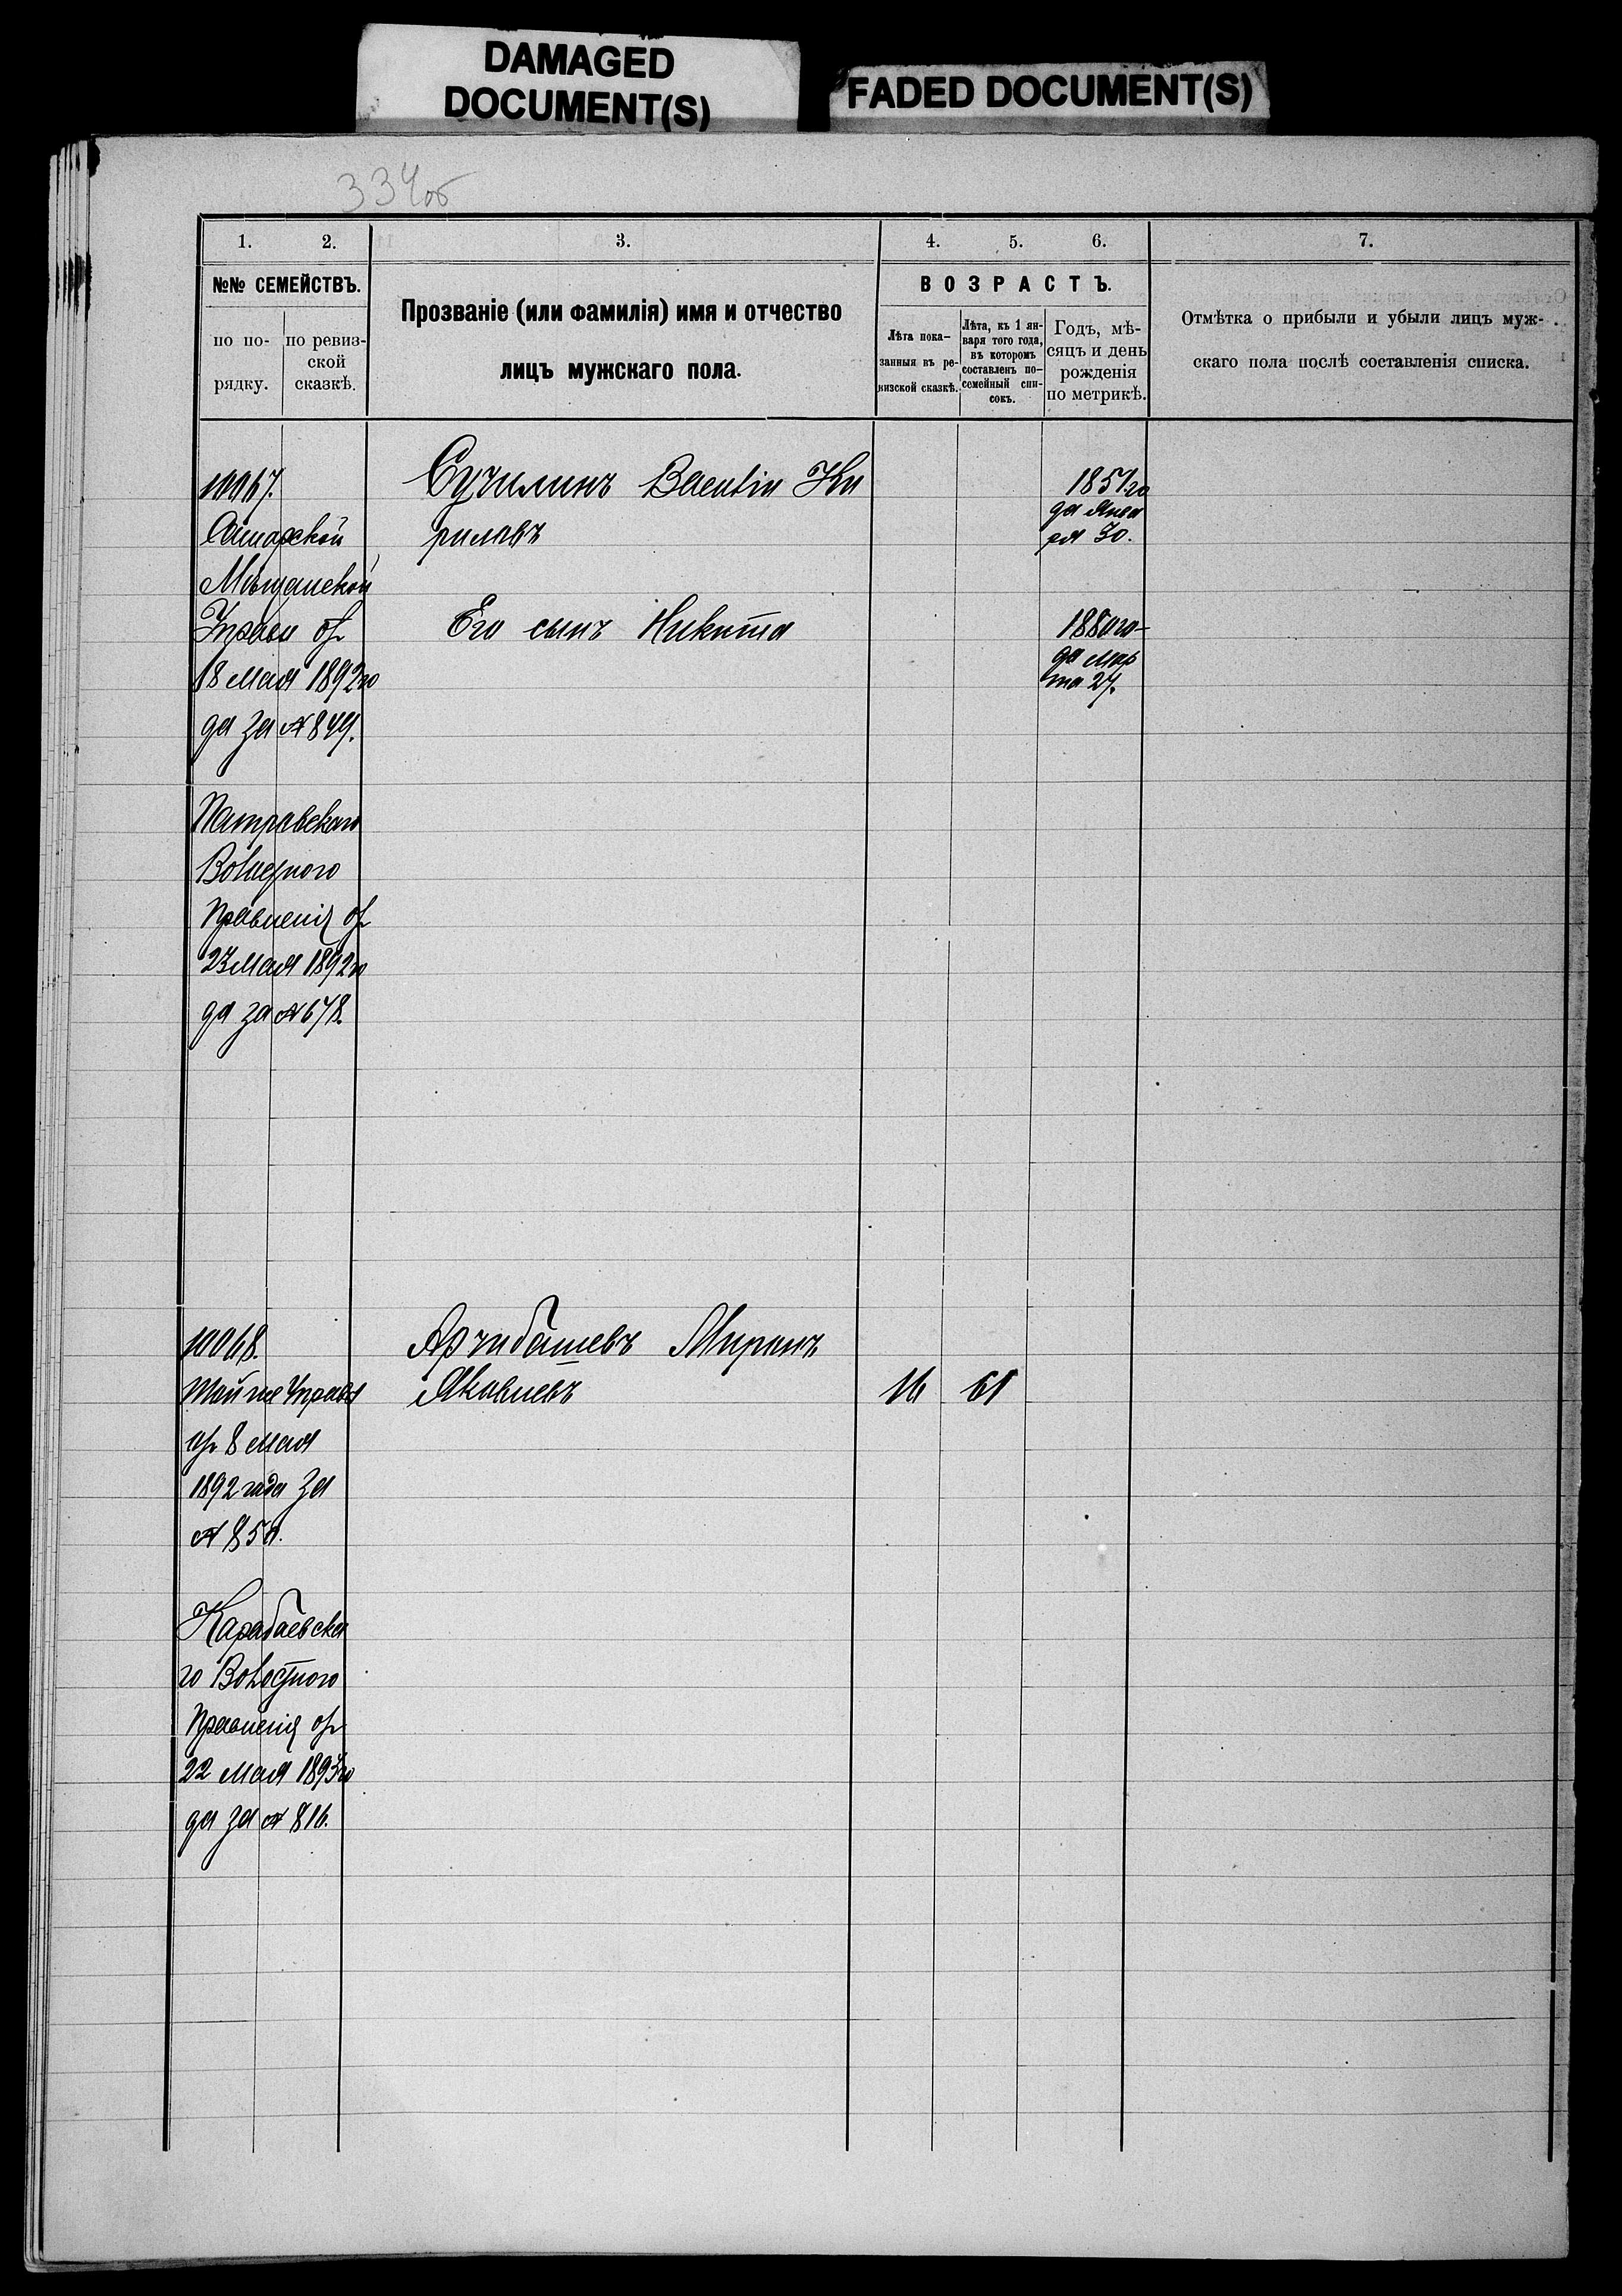 DAMAGED
DOCUMENT(S)
FADED DOCUMENT(S)
334об
1. 2. 3. 4. 5. 6. 7.
№№ СЕМЕЙСТВЪ.
по по-
рядку.
по ревиз-
ской
сказкѣ.
Прозваніе (или фамилія) имя и отчество
лицъ мужскаго пола.
ВОЗРАСТЪ.
Лѣта пока-
занныя въ ре-
визской сказкѣ.
Лѣта, къ 1 ян-
варя того года,
въ которомъ
составленъ по-
семейный спи-
сокъ.
Годъ, мѣ-
сяцъ и день
рожденія
по метрикѣ.
Отмѣтка о прибыли и убыли лицъ муж-
скаго пола послѣ составленія списка.
10067.
Самарской
Мѣщанской
Управы от
18 мая 1892 го
да за № 849.
Патровскаго
Волостного
Правленія от
23 мая 1892 го
да за № 678.
Сучилинъ Василій Ки
риловъ
1851 го
да Янва
ря 30.
Его сынъ Никита
1880 го-
да Мар
та 27.
10068.
Той же Управы
от 8 мая
1892 года за
№ 850.
Карабаевска
го Волостного
Правленія от
22 мая 1893 го
да за № 816.
Арчибашевъ Миронъ
Яковлевъ
16 61